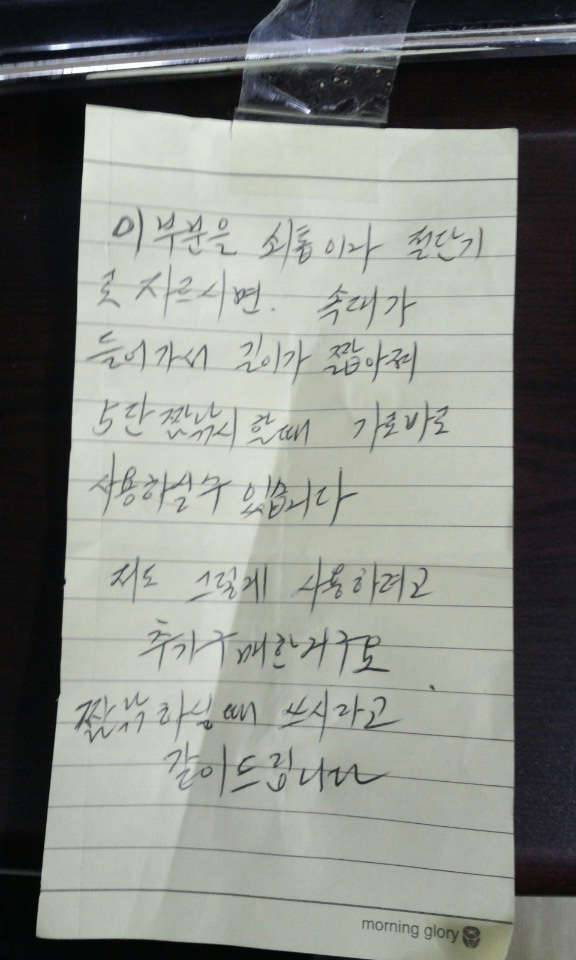 이 부분은 쇠톱이나 절단기
로 자르시면. 속대가
들어가서 길이가 짧아져
5단 짧낚시 할때 가로바로
사용하실수 있습니다
저도 그렇게 사용하려고
추가구매한거구요
짧낚 하실때 쓰시라고
같이드립니다
morning glory